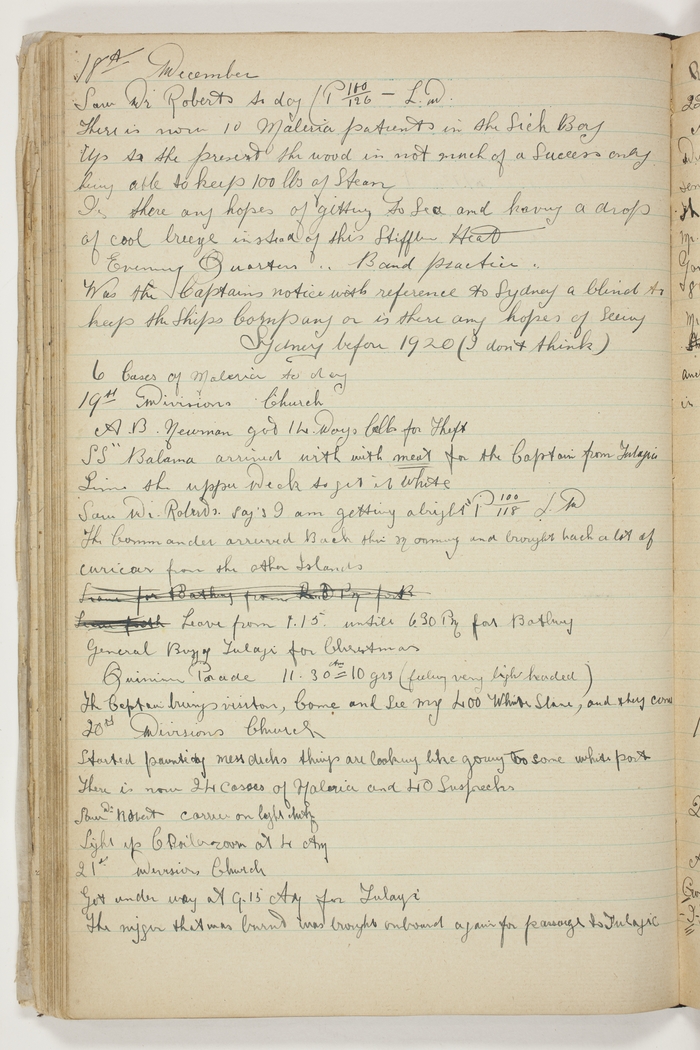 18th December
Saw Dr Roberts to day / P 100/126 — L.D.
There is now 10 Maleria patients in the Sick Bay
Up to the present the wood in not much of a Success only
being able to keep 100 lbs of Steam
Is there any hopes of gitting to Sea and having a drop
of cool breeze instead of this Stiffler Heat
Evening Quarters .. Band practice ..
Was the Captains notice with reference to Sydney a blind to
keep the Ships Company or is there any hopes of Seeing
Sydney before 1920 (I don't think)
6 Cases of Maleria to day
19th Divisions Church
A.B. Newman god 14 Days Cells for Theft
SS" Balama arrived with with meat for the Captain from Tulagi
Lime the upper Deck to get it White
Saw Dr. Roberts. say's I am getting alright P 100/118 L D
The Commander arrived Back this Morning and brought back a lot of
curioas from the other Islands
Leave for Bathing from
Leave from 1.15. untill 630 PM for Bathing
General Buzz Tulagi for Christmas
Quinine Parade 11.30 AM = 10 grs (feeling very light headed)
The Captain brings visitors, Come and See my 400 White Slaves, and they come
20th Divisions Church
Started painting messdecks things are looking like going to some white port
There is now 24 casses of Maleria and 40 Suspects
Saw Dr Robert carrier on light duty
Light up C Boilerroom at 4 AM
21st Divisions Church
Got under way at 9.15 AM for Tulagi
The nigger that was burnt was brought onboard again for passage to Tulagi